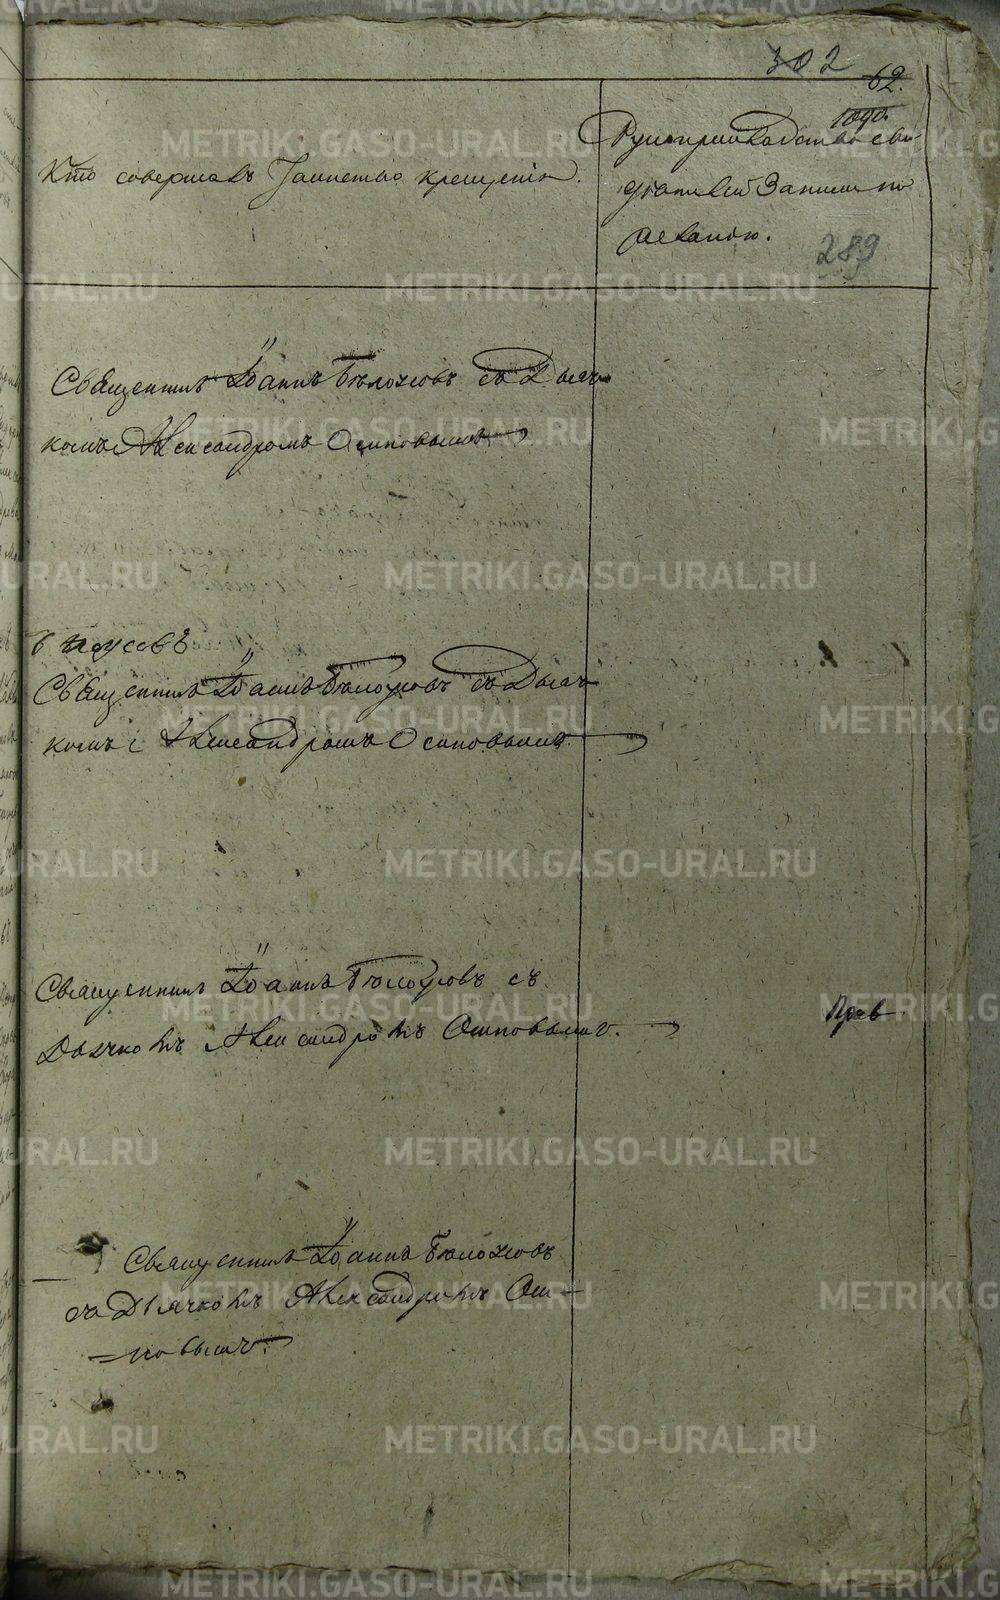 302
62.
1090.
Кто совершалъ Таинство крещенія.
Рукоприкладство сви-
дѣтелей записи по
желанію.
289
Священникъ Іоаннъ Бѣлоусовъ съ Дьяч-
комъ Александромъ Осиповымъ
Священникъ Іоаннъ Бѣлоусовъ съ Дьяч-
комъ Александромъ Осиповымъ.
Священникъ Іоаннъ Бѣлоусовъ съ
Дьячкомъ Александромъ Осиповымъ.
Прав
Священникъ Іоаннъ Бѣлоусовъ
съ Дьячкомъ Александромъ Оси-
повымъ.
METRIKI.GASO-URAL.RU